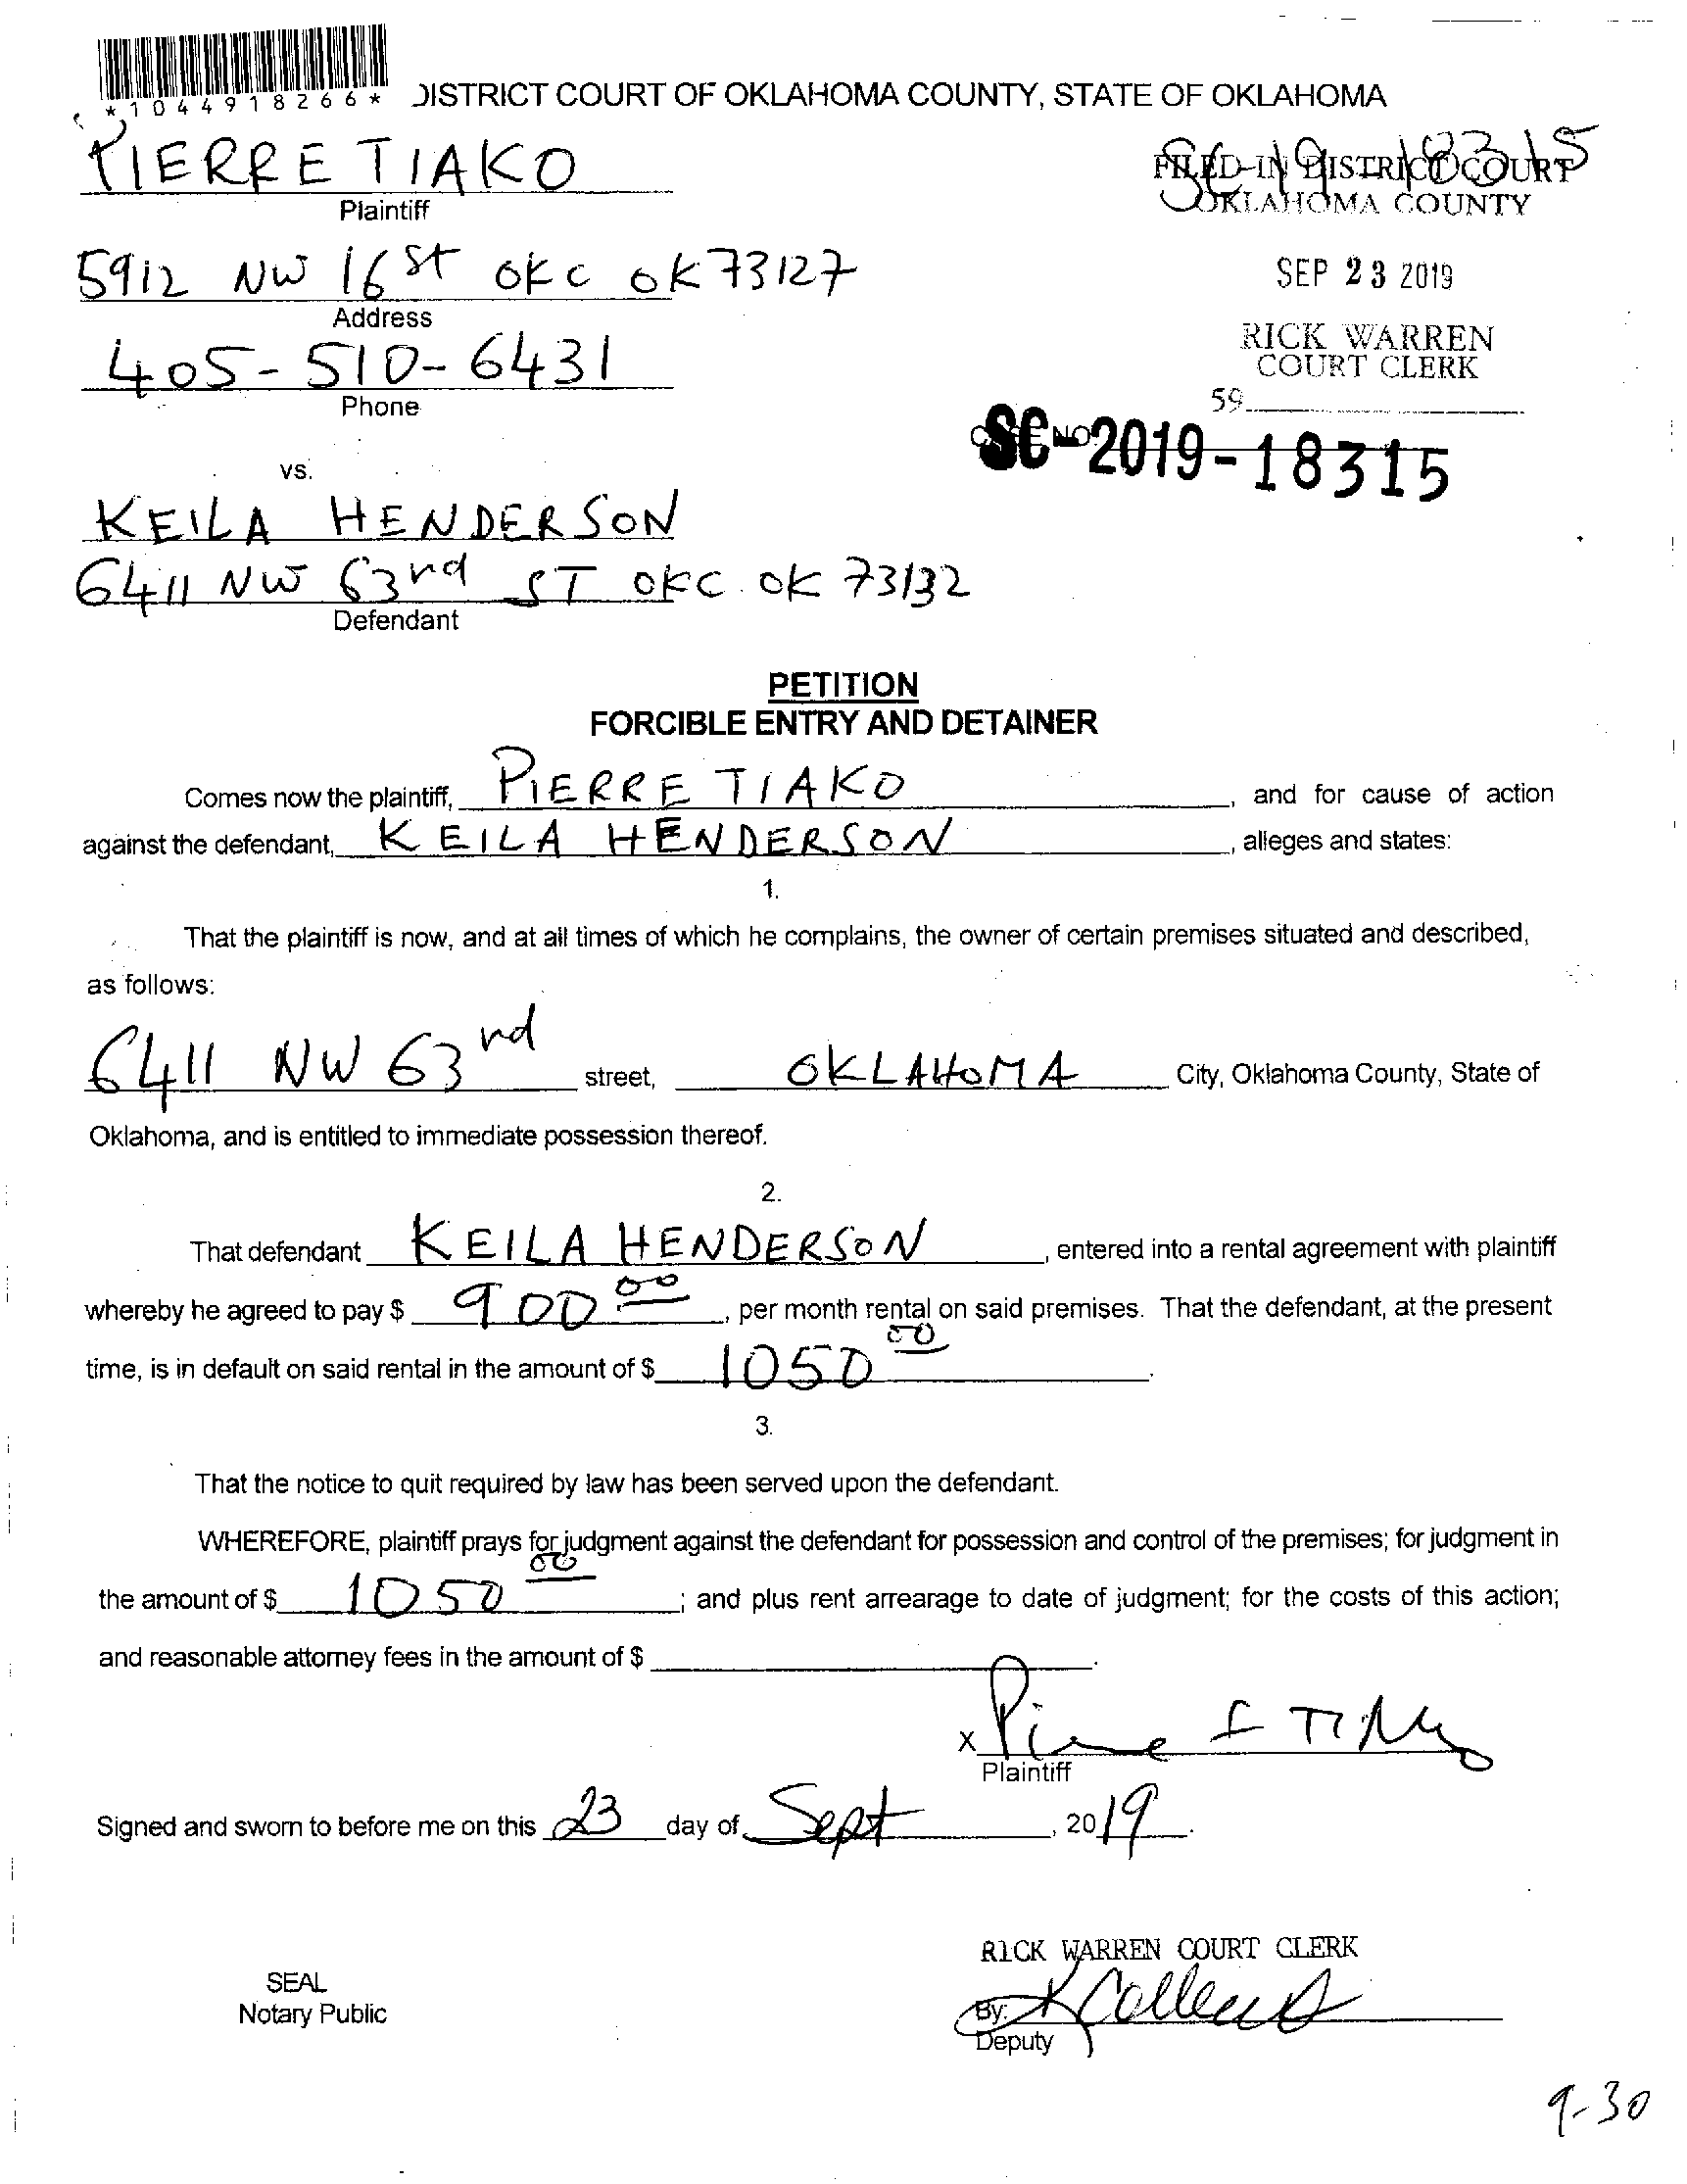 *1044918266*
DISTRICT COURT OF OKLAHOMA COUNTY, STATE OF OKLAHOMA
PIERRE TIAKO
Plaintiff
SC-19-18315
FILED IN DISTRICT COURT
OKLAHOMA COUNTY
5912 NW 16 St OKC OK 73127
Address
SEP 23 2019
405-510-6431
Phone
RICK WARREN
COURT CLERK
59
CASE NO
SC-2019-18315
vs.
KEILA HENDERSON
6411 NW 63rd ST OKC OK 73132
Defendant
PETITION
FORCIBLE ENTRY AND DETAINER
Comes now the plaintiff, PIERRE TIAKO, and for cause of action
against the defendant, KEILA HENDERSON, alleges and states:
1.
That the plaintiff is now, and at all times of which he complains, the owner of certain premises situated and described,
as follows:
6411 NW 63rd street, OKLAHOMA City, Oklahoma County, State of
Oklahoma, and is entitled to immediate possession thereof.
2.
That defendant KEILA HENDERSON, entered into a rental agreement with plaintiff
whereby he agreed to pay $ 900 00, per month rental on said premises. That the defendant, at the present
time, is in default on said rental in the amount of $ 1050 00.
3.
That the notice to quit required by law has been served upon the defendant.
WHEREFORE, plaintiff prays for judgment against the defendant for possession and control of the premises; for judgment in
the amount of $ 1050 00; and plus rent arrearage to date of judgment; for the costs of this action;
and reasonable attorney fees in the amount of $ .
X
Plaintiff
Signed and sworn to before me on this 23 day of Sept, 2019.
RICK WARREN COURT CLERK
SEAL
Notary Public
By:
Deputy
9-30